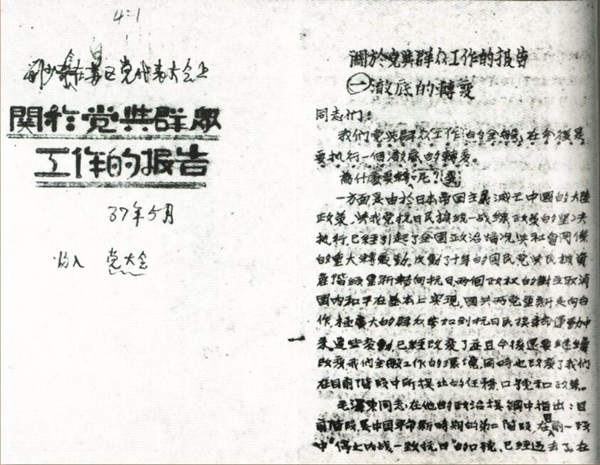 4:1
刘少奇在苏区党代表大会上
關於党與群眾
工作的报告
37年5月
收入 党大会
關於党與群众工作的报告
㊀澈底的轉变
同志们:
我们党與群众工作的全般,在今後是
要执行一個澈底的轉变。
為什麼要轉呢?
一方面是由於日本帝国主義滅亡中國的大陸
政策,與我党抗日民族統一战綫政策的坚决
执行,已經引起了全國政治情况與社會関係
的重大轉变,反動了十年的國民党與民族資
產階級重新轉向抗日,兩個政权的對立取消
國内和平在基本上实現,國共兩党重新走向合
作,極廣大的群众参加到抗日民族革命運動中
來這些变動,已經改变了並且今後還要継續
改变我们全般工作的環境,同時也改变了我们
在目前階段中所提出的任務,口號和政策。
毛澤東同志在他的政治提綱中指出:目
前階段是中國革命新時期的第二階段,在前一階段
中"停止内战一致抗日"的口號,已經过去了,在